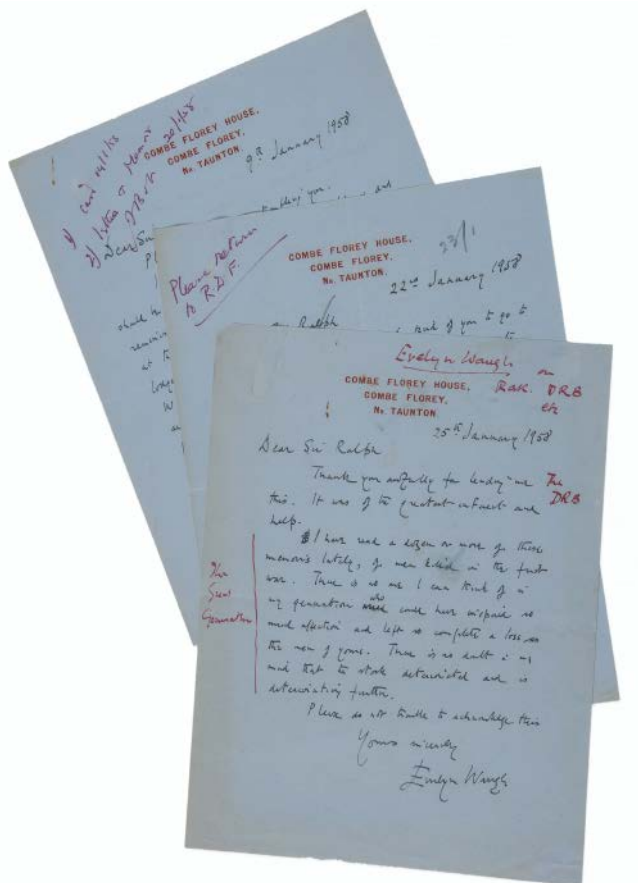 1) card 14/1/58
2) letter &
20/1/58
COMBE FLOREY HOUSE,
COMBE FLOREY,
Nr. TAUNTON.
9th January 1958
Dear Sir
troubling you.
shall
at the
W
Please return
to R.D.F.
COMBE FLOREY HOUSE,
COMBE FLOREY,
Nr. TAUNTON.
23/1
22nd January 1958
Ralph
kind of you to go to
Evelyn Waugh on
DRB
etc
COMBE FLOREY HOUSE,
COMBE FLOREY,
Nr. TAUNTON
25th January 1958
Dear Sir Ralph
Thank you awfully for lending me
The
DRB
this. It was of the greatest interest and
help.
I have read a dozen or more of these
memoirs lately, of men killed in the first
war. There is no one I can think of in
my generation who could have inspired so
much affection and left so complete a loss as
the men of yours. There is no doubt in my
mind that the stock deteriorated and is
deteriorating further.
The
Generation
Please do not trouble to acknowledge this
Yours sincerely
Evelyn Waugh